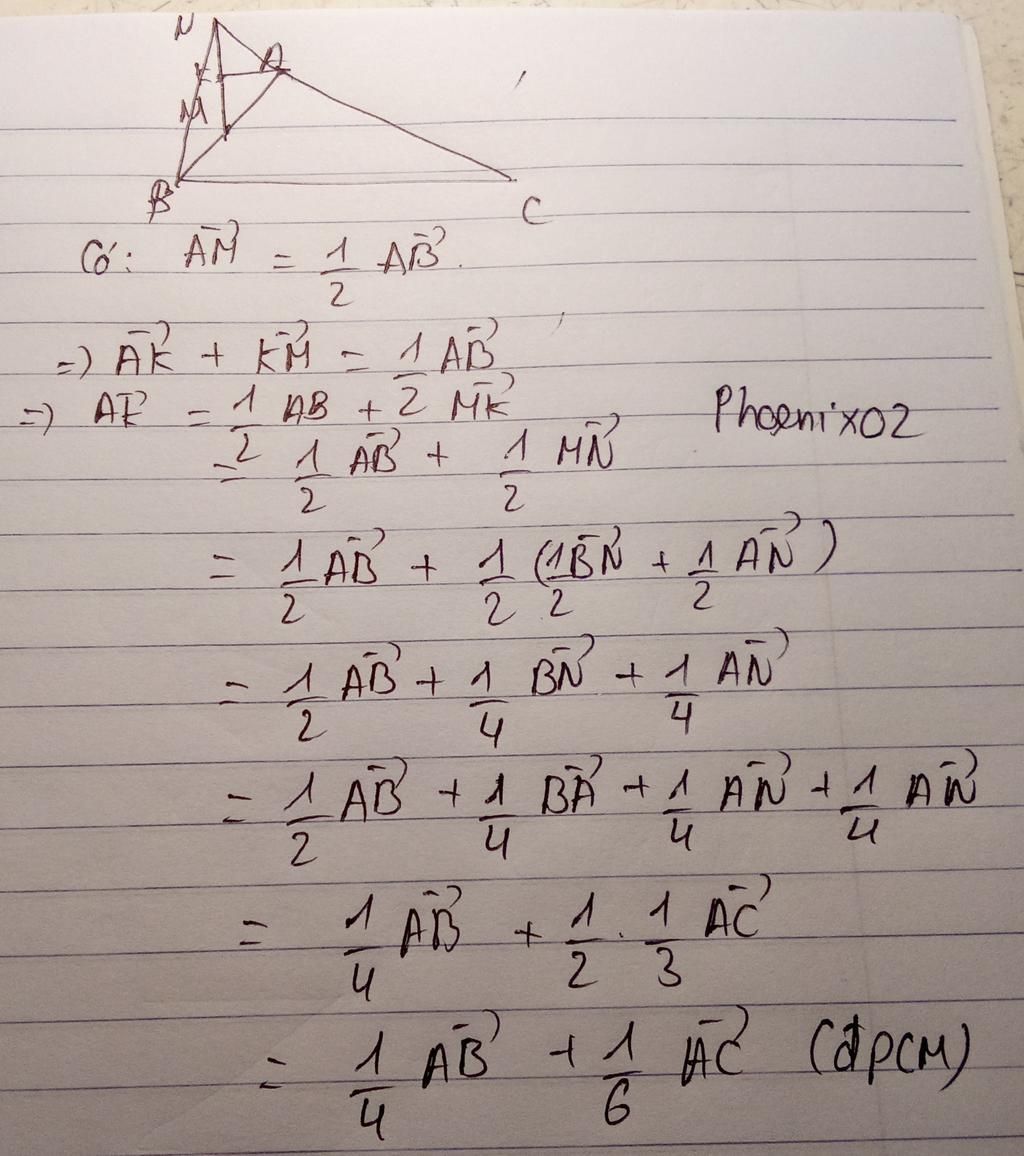 N
A
K
M
B
C
Có: \overrightarrow{AM} = \frac{1}{2} \overrightarrow{AB}.
=) \overrightarrow{AK} + \overrightarrow{KM} = \frac{1}{2} \overrightarrow{AB}
=) \overrightarrow{AK} = \frac{1}{2} AB + \overrightarrow{MK}
Phoenix02
= \frac{1}{2} \overrightarrow{AB} + \frac{1}{2} \overrightarrow{MN}
= \frac{1}{2} \overrightarrow{AB} + \frac{1}{2} (\frac{1}{2} \overrightarrow{BN} + \frac{1}{2} \overrightarrow{AN})
= \frac{1}{2} \overrightarrow{AB} + \frac{1}{4} \overrightarrow{BN} + \frac{1}{4} \overrightarrow{AN}
= \frac{1}{2} \overrightarrow{AB} + \frac{1}{4} \overrightarrow{BA} + \frac{1}{4} \overrightarrow{AN} + \frac{1}{4} \overrightarrow{AN}
= \frac{1}{4} \overrightarrow{AB} + \frac{1}{2} . \frac{1}{3} \overrightarrow{AC}
= \frac{1}{4} \overrightarrow{AB} + \frac{1}{6} \overrightarrow{AC} (đpcm)